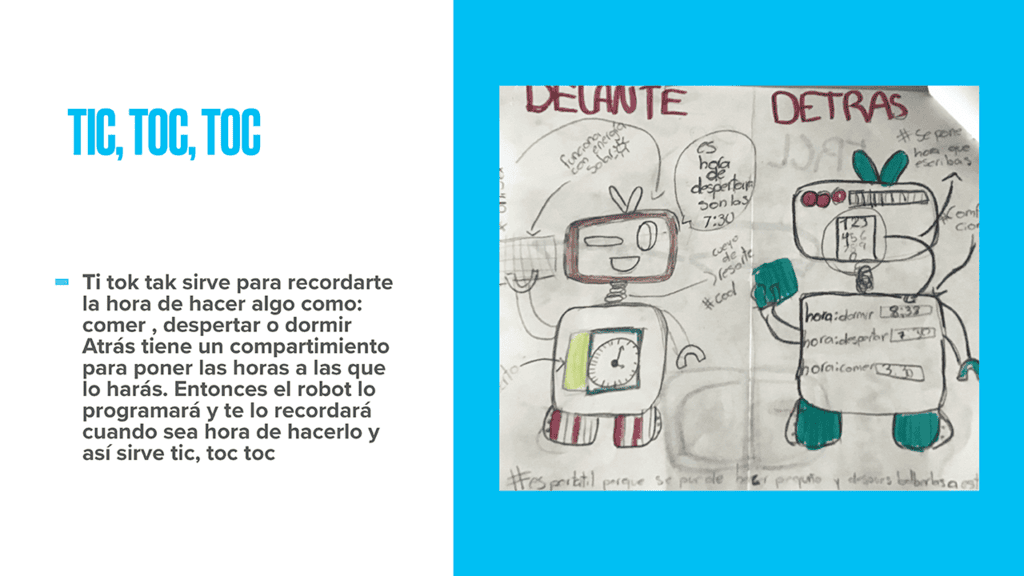 TIC, TOC, TOC
Ti tok tak sirve para recordarte
la hora de hacer algo como:
comer , despertar o dormir
Atrás tiene un compartimiento
para poner las horas a las que
lo harás. Entonces el robot lo
programará y te lo recordará
cuando sea hora de hacerlo y
así sirve tic, toc toc
DELANTE
funciona
con energía
solar
es
hora
de
despertarse
son las
7:30
cueyo
de
resorte
#cool
DETRAS
# Se pone
hora que
escribas
123
456
789
0
hora:dormir 8:38
hora:despertar 7 30
hora:comer 3 30
#es portatil porque se puede hacer pequeño y despues